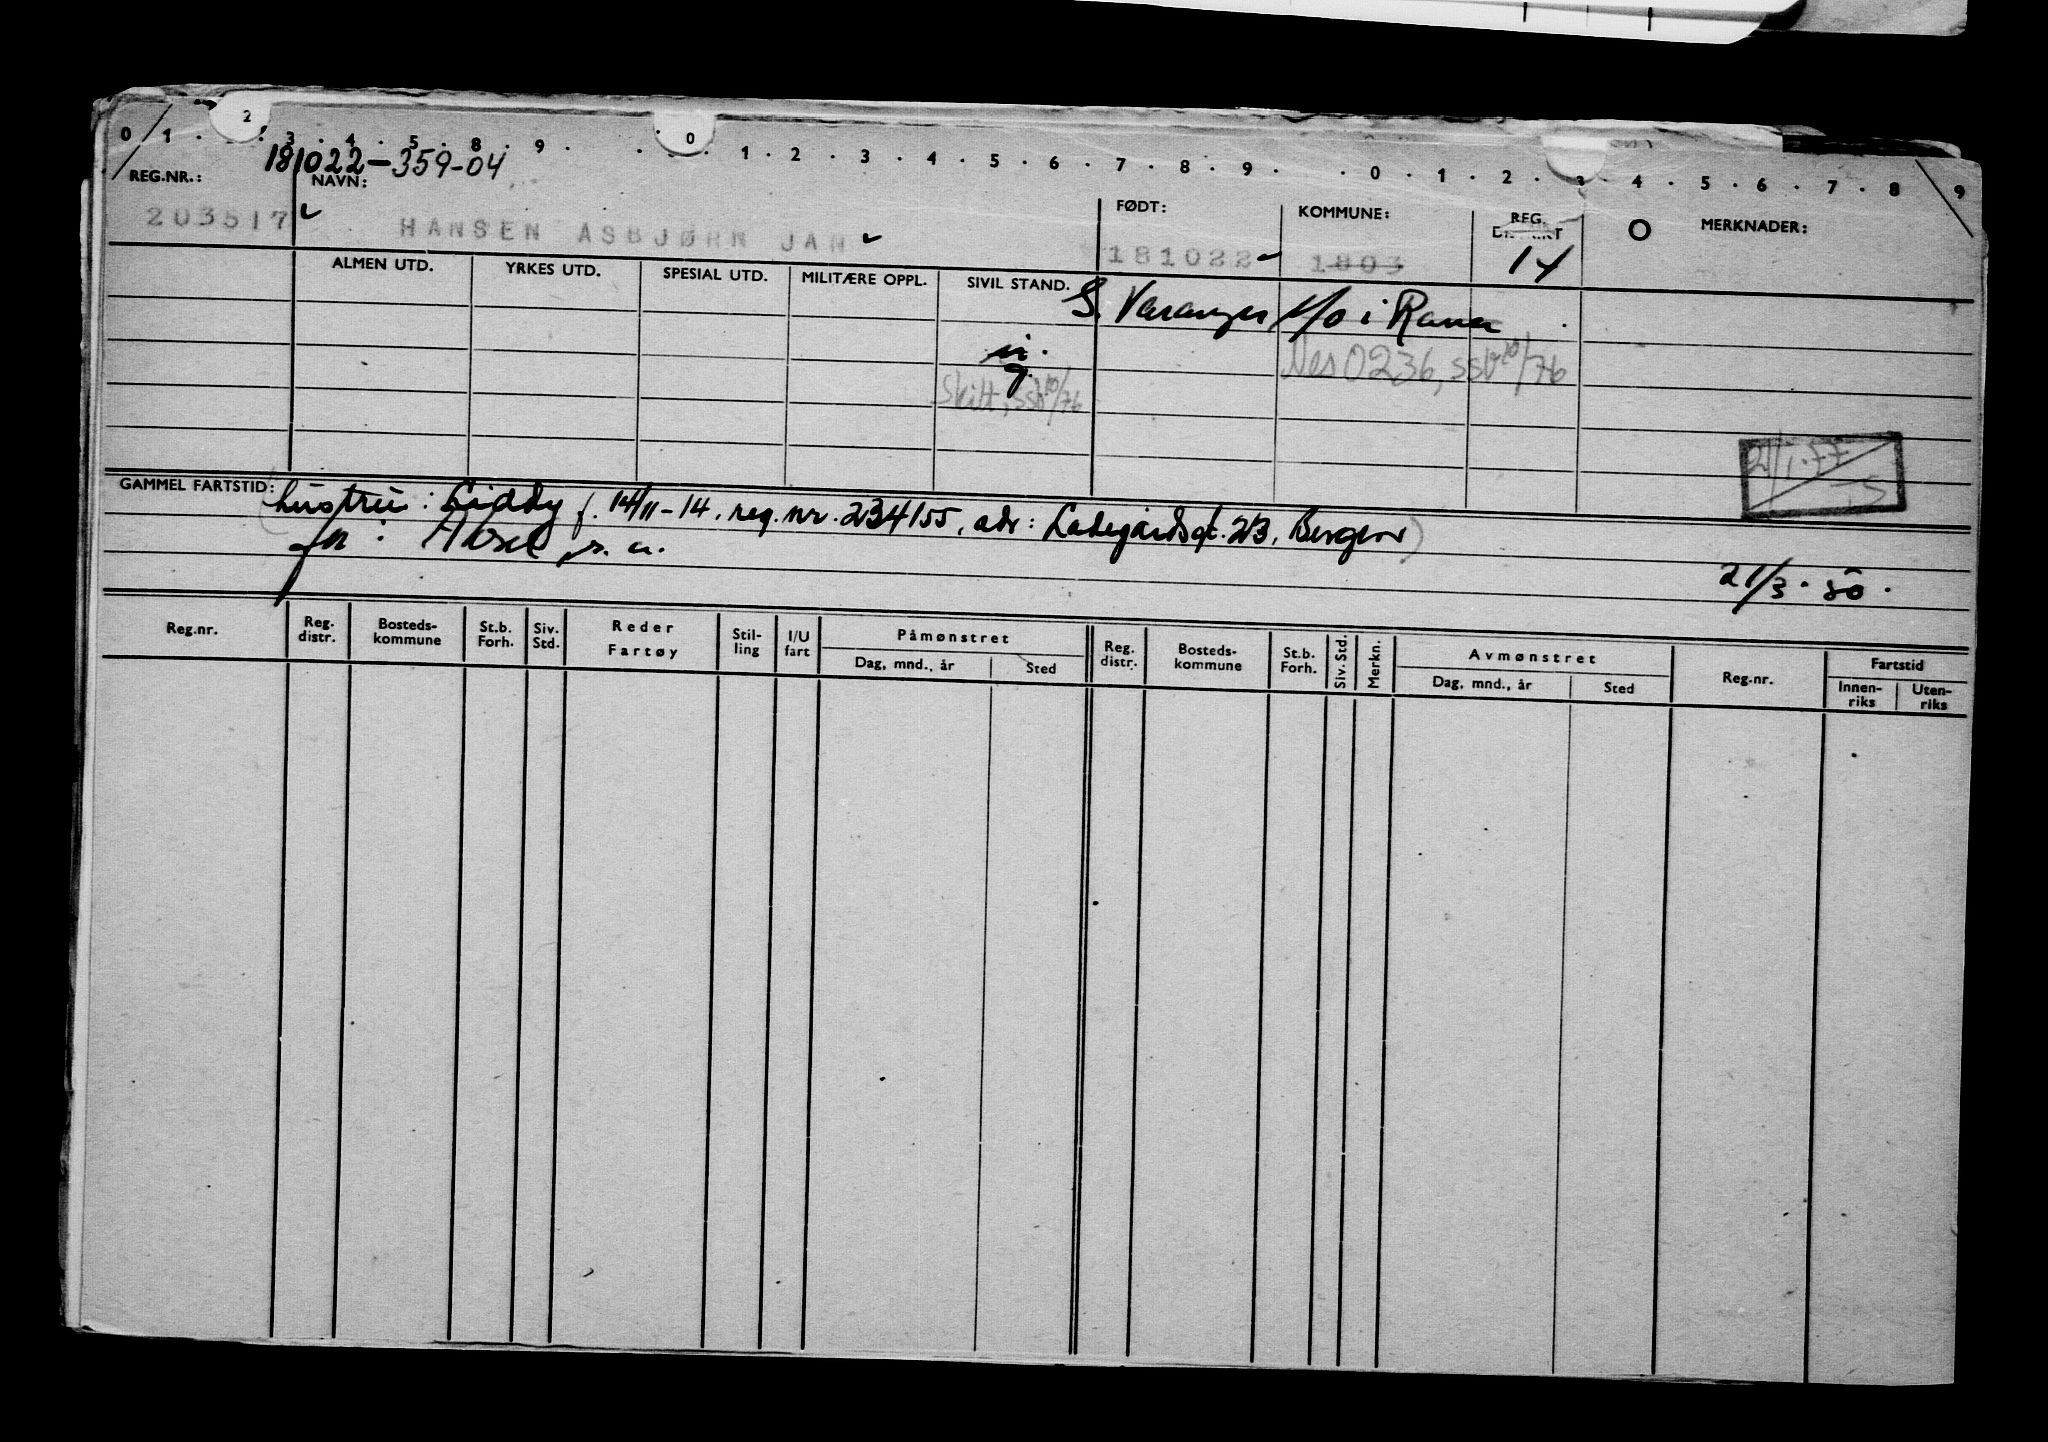 0 1 . 2 3 . 4 . 5 . 8 . 9 . . 0 . 1 . 2 . 3 . 4 . 5 . 6 . 7 . 8 . 9 . . 0 . 1 . 2 . 3 . 4 . 5 . 6 . 7 . 8 9
181022-359-04
REG.NR.: NAVN: FØDT: KOMMUNE: REG. MERKNADER:
203517 HANSEN ASBJØRN JAN 181022 1803 14
ALMEN UTD. YRKES UTD. SPESIAL UTD. MILITÆRE OPPL. SIVIL STAND.
S. Varanger f/o i Rana
g.
Nes 0236, ssv 10/76
Skilt, ssv 10/76
GAMMEL FARTSTID:
hustru: Liddy f. 14/11-14, reg.nr. 234155, adr: Ladegårdsgt. 23, Bergen)
fr: Aksel, s. a.
21/3.50.
Reg.nr. Reg. distr. Bosteds-kommune St.b. Forh. Siv. Std. Reder Fartøy Stil-ling I/U fart Påmønstret Dag, mnd., år Sted Reg. distr. Bosteds-kommune St.b. Forh. Siv. Std. Merkn. Avmønstret Dag, mnd., år Sted Reg.nr. Fartstid Innen-riks Uten-riks